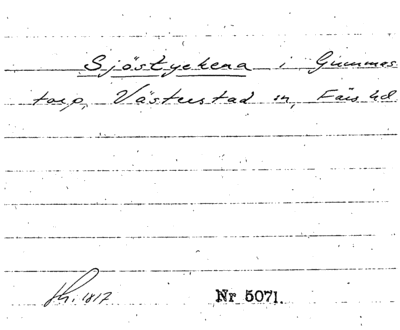 Sjöstyckena i Gummas
torp, Västerstad sn, Färs hd
1817
Nr 5071.